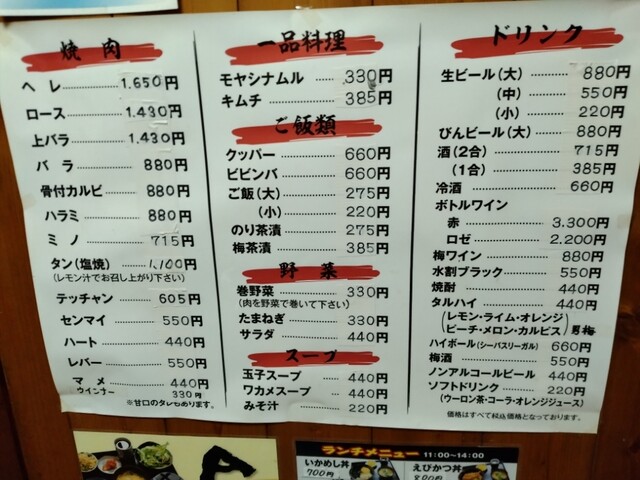 焼肉
ヘレ 1,650円
ロース 1,430円
上バラ 1,430円
バラ 880円
骨付カルビ 880円
ハラミ 880円
ミノ 715円
タン(塩焼) 1,100円
(レモン汁でお召し上がり下さい)
テッチャン 605円
センマイ 550円
ハート 440円
レバー 550円
マメ 440円
ウインナー 330円
※甘口のタレもあります。
一品料理
モヤシナムル 330円
キムチ 385円
ご飯類
クッパー 660円
ビビンバ 660円
ご飯(大) 275円
(小) 220円
のり茶漬 275円
梅茶漬 385円
野菜
巻野菜 330円
(肉を野菜で巻いて下さい)
たまねぎ 330円
サラダ 440円
スープ
玉子スープ 440円
ワカメスープ 440円
みそ汁 220円
ドリンク
生ビール(大) 880円
(中) 550円
(小) 220円
びんビール(大) 880円
酒(2合) 715円
(1合) 385円
冷酒 660円
ボトルワイン
赤 3,300円
ロゼ 2,200円
梅ワイン 880円
水割ブラック 550円
焼酎 440円
タルハイ 440円
(レモン・ライム・オレンジ
ピーチ・メロン・カルピス) 男梅
ハイボール(シーバスリーガル) 660円
梅酒 550円
ノンアルコールビール 440円
ソフトドリンク 220円
(ウーロン茶・コーラ・オレンジジュース)
価格はすべて税込価格となっております。
ランチメニュー 11:00~14:00
いかめし丼 700円
えびかつ丼 800円